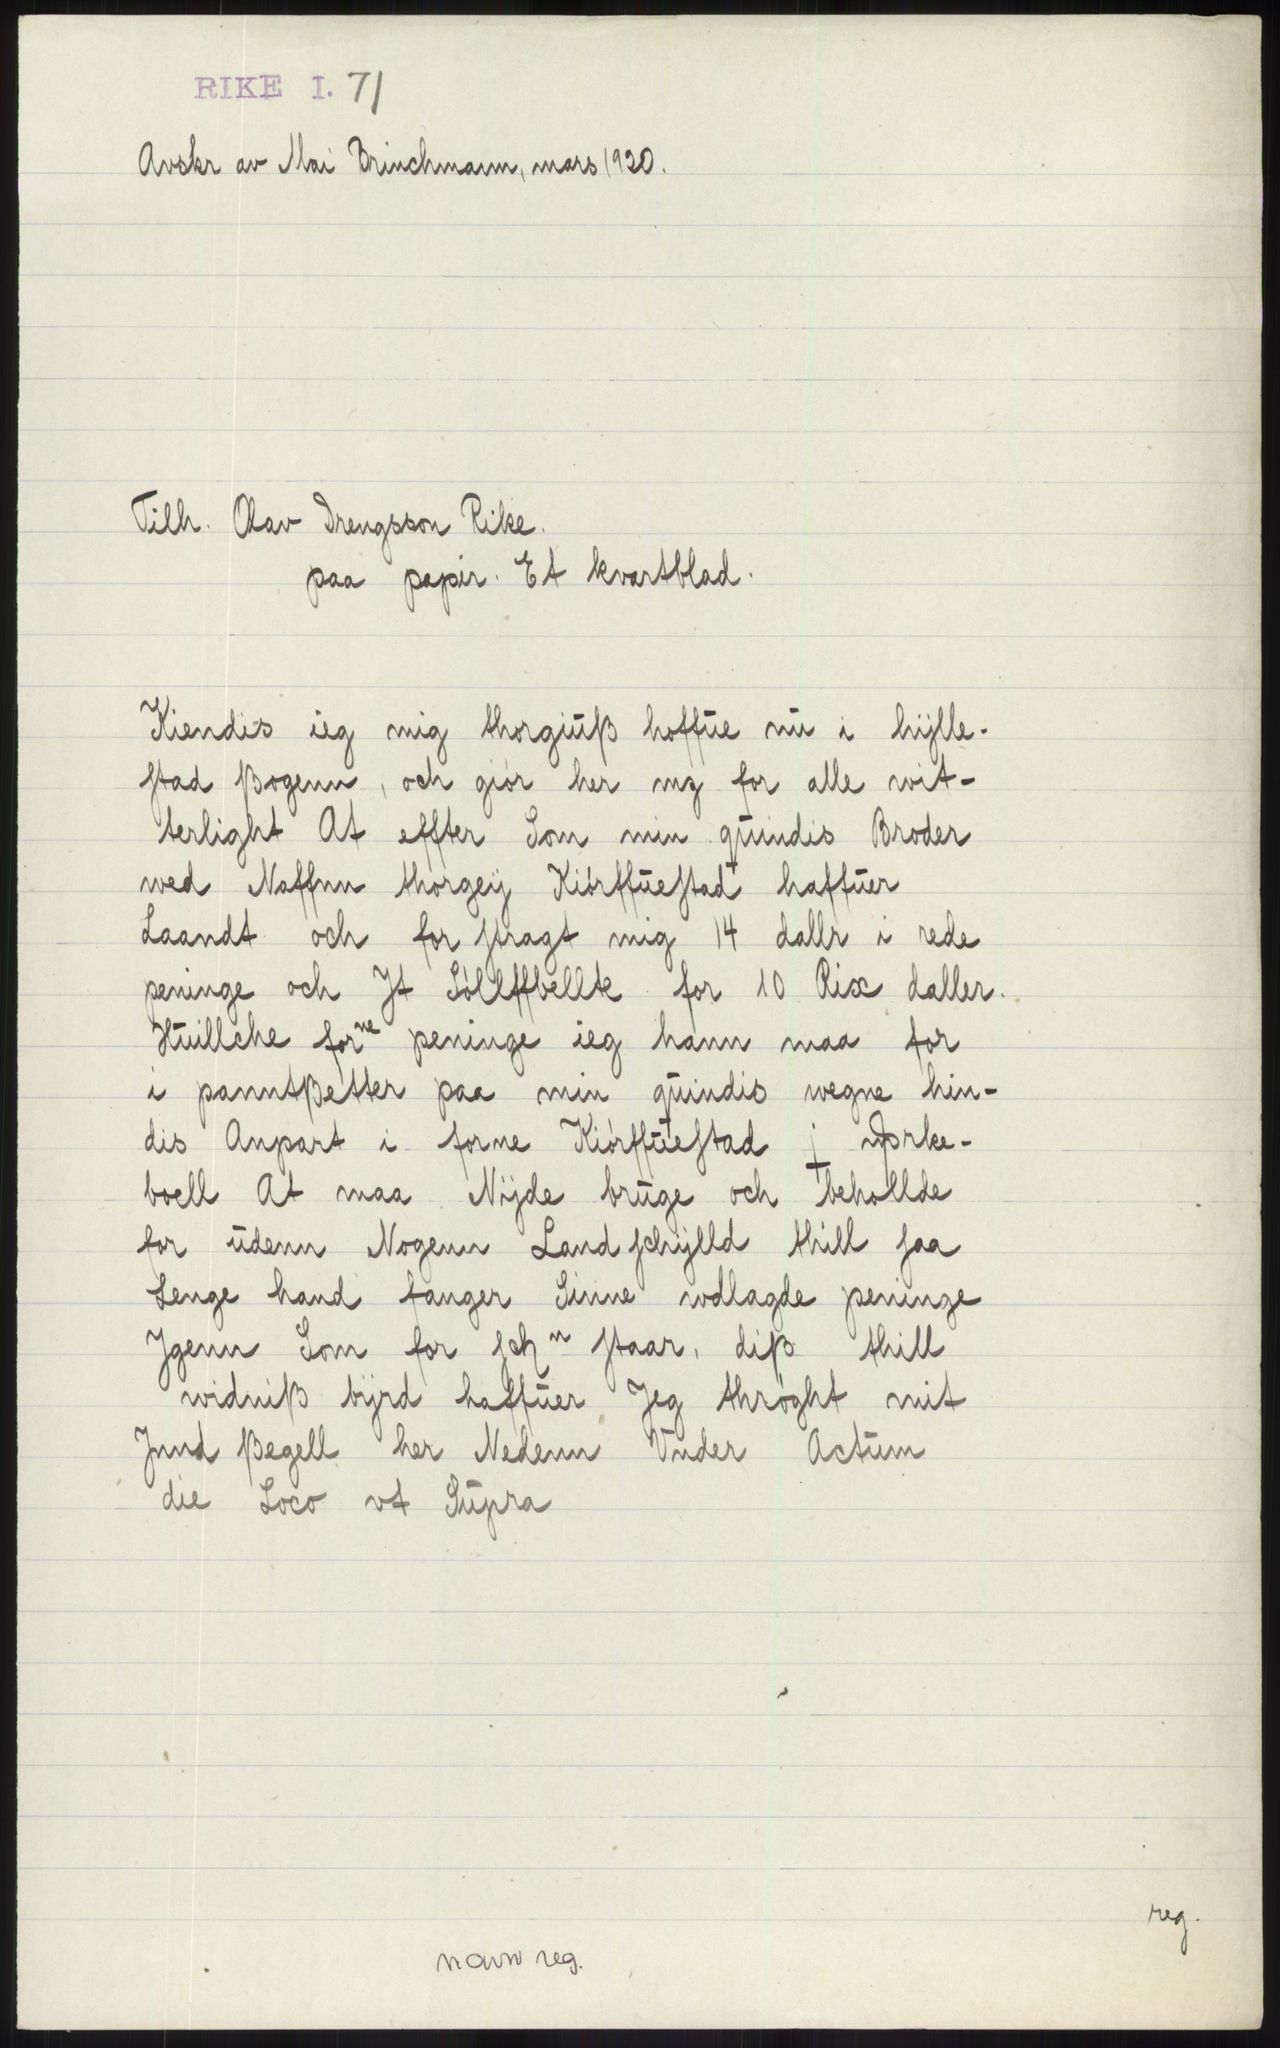 RIKE I. 71
Avskr av Mai Brinchmann, mars 1920.
Tilh. Olav Drengsson Rike.
paa papir. Et kvartblad.
Kiendis ieg mig thorgiuß hoffue nu i hÿlle-
stad ßogenn, och giör her mz for alle wit-
terlight At effter Som min quindis Broder
wed Naffnn thorgeÿ Kiörffuestad haffuer
Laandt och for stragt mig 14 dallr i rede
peninge och Jt Söllffbellte for 10 Rix daller.
Huillche forne peninge ieg hann maa for
i panntßetter paa min quindis wegne hin-
dis Anpart i forne Kiörffuestad j
boell At maa Nÿde bruge och behollde
for udenn Nogenn Landschÿlld thill saa
Lenge hand fanger Sinne wdlagde peninge
Jgenn Som for staar, diß thill
widniß bÿrd haffuer Jeg thröght mit
Jnnd ßegell her Nedenn Vnder Actum
die Loco vt Supra
reg.
navn reg.